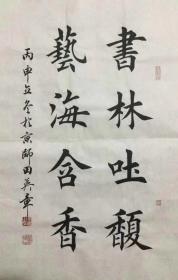 書林吐馥
藝海含香
丙申立冬於京師田英章